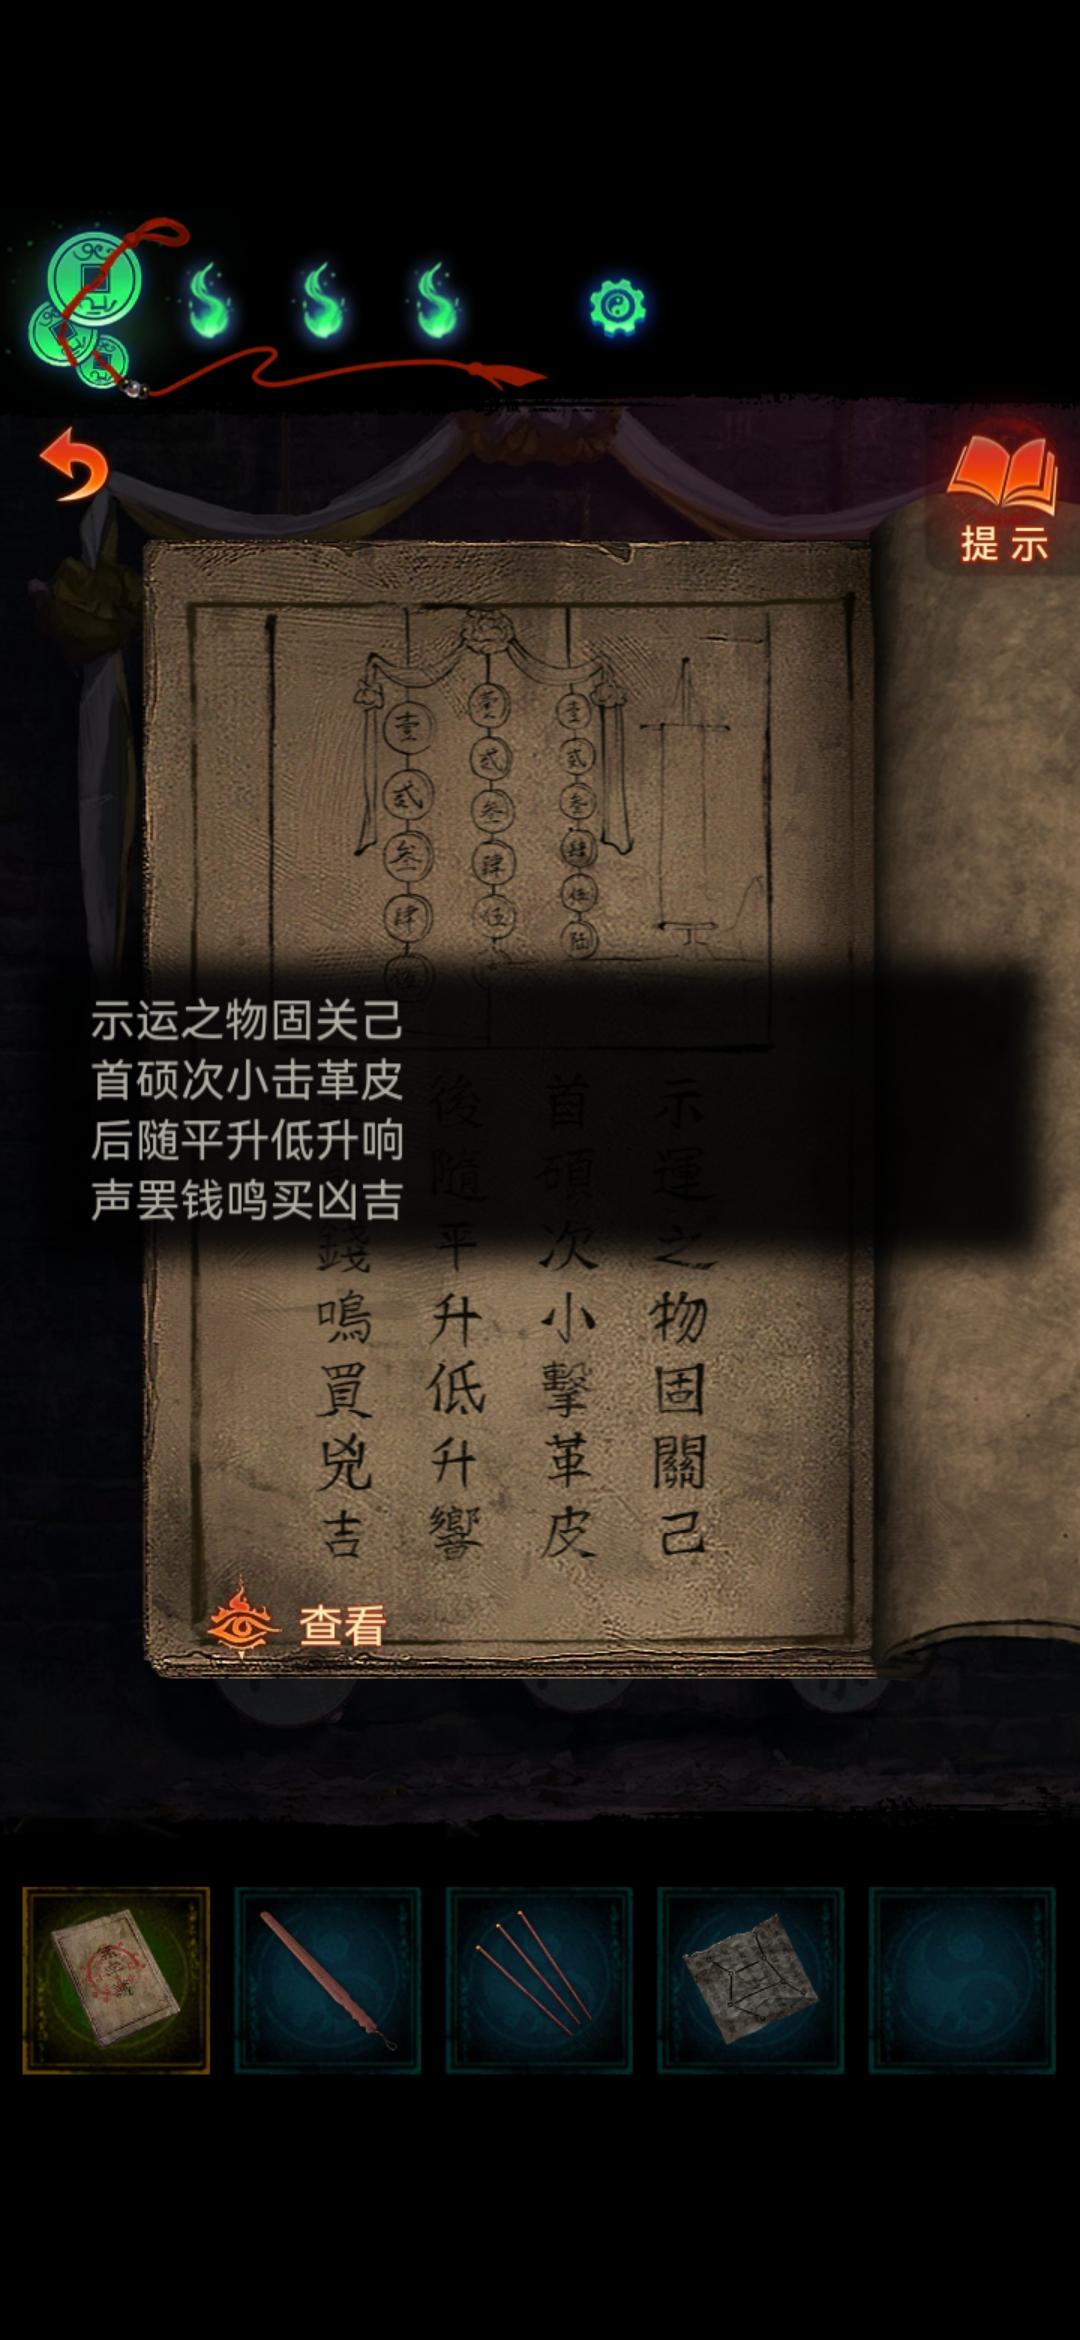 提示
壹 壹 壹
贰 贰 贰
叁 叁 叁
肆 肆 肆
伍 伍 伍
陆
示运之物固关己
首硕次小击革皮
后随平升低升响
声罢钱鸣买凶吉
示運之物固關己
首碩次小擊革皮
後隨平升低升響
錢鳴買兇吉
查看